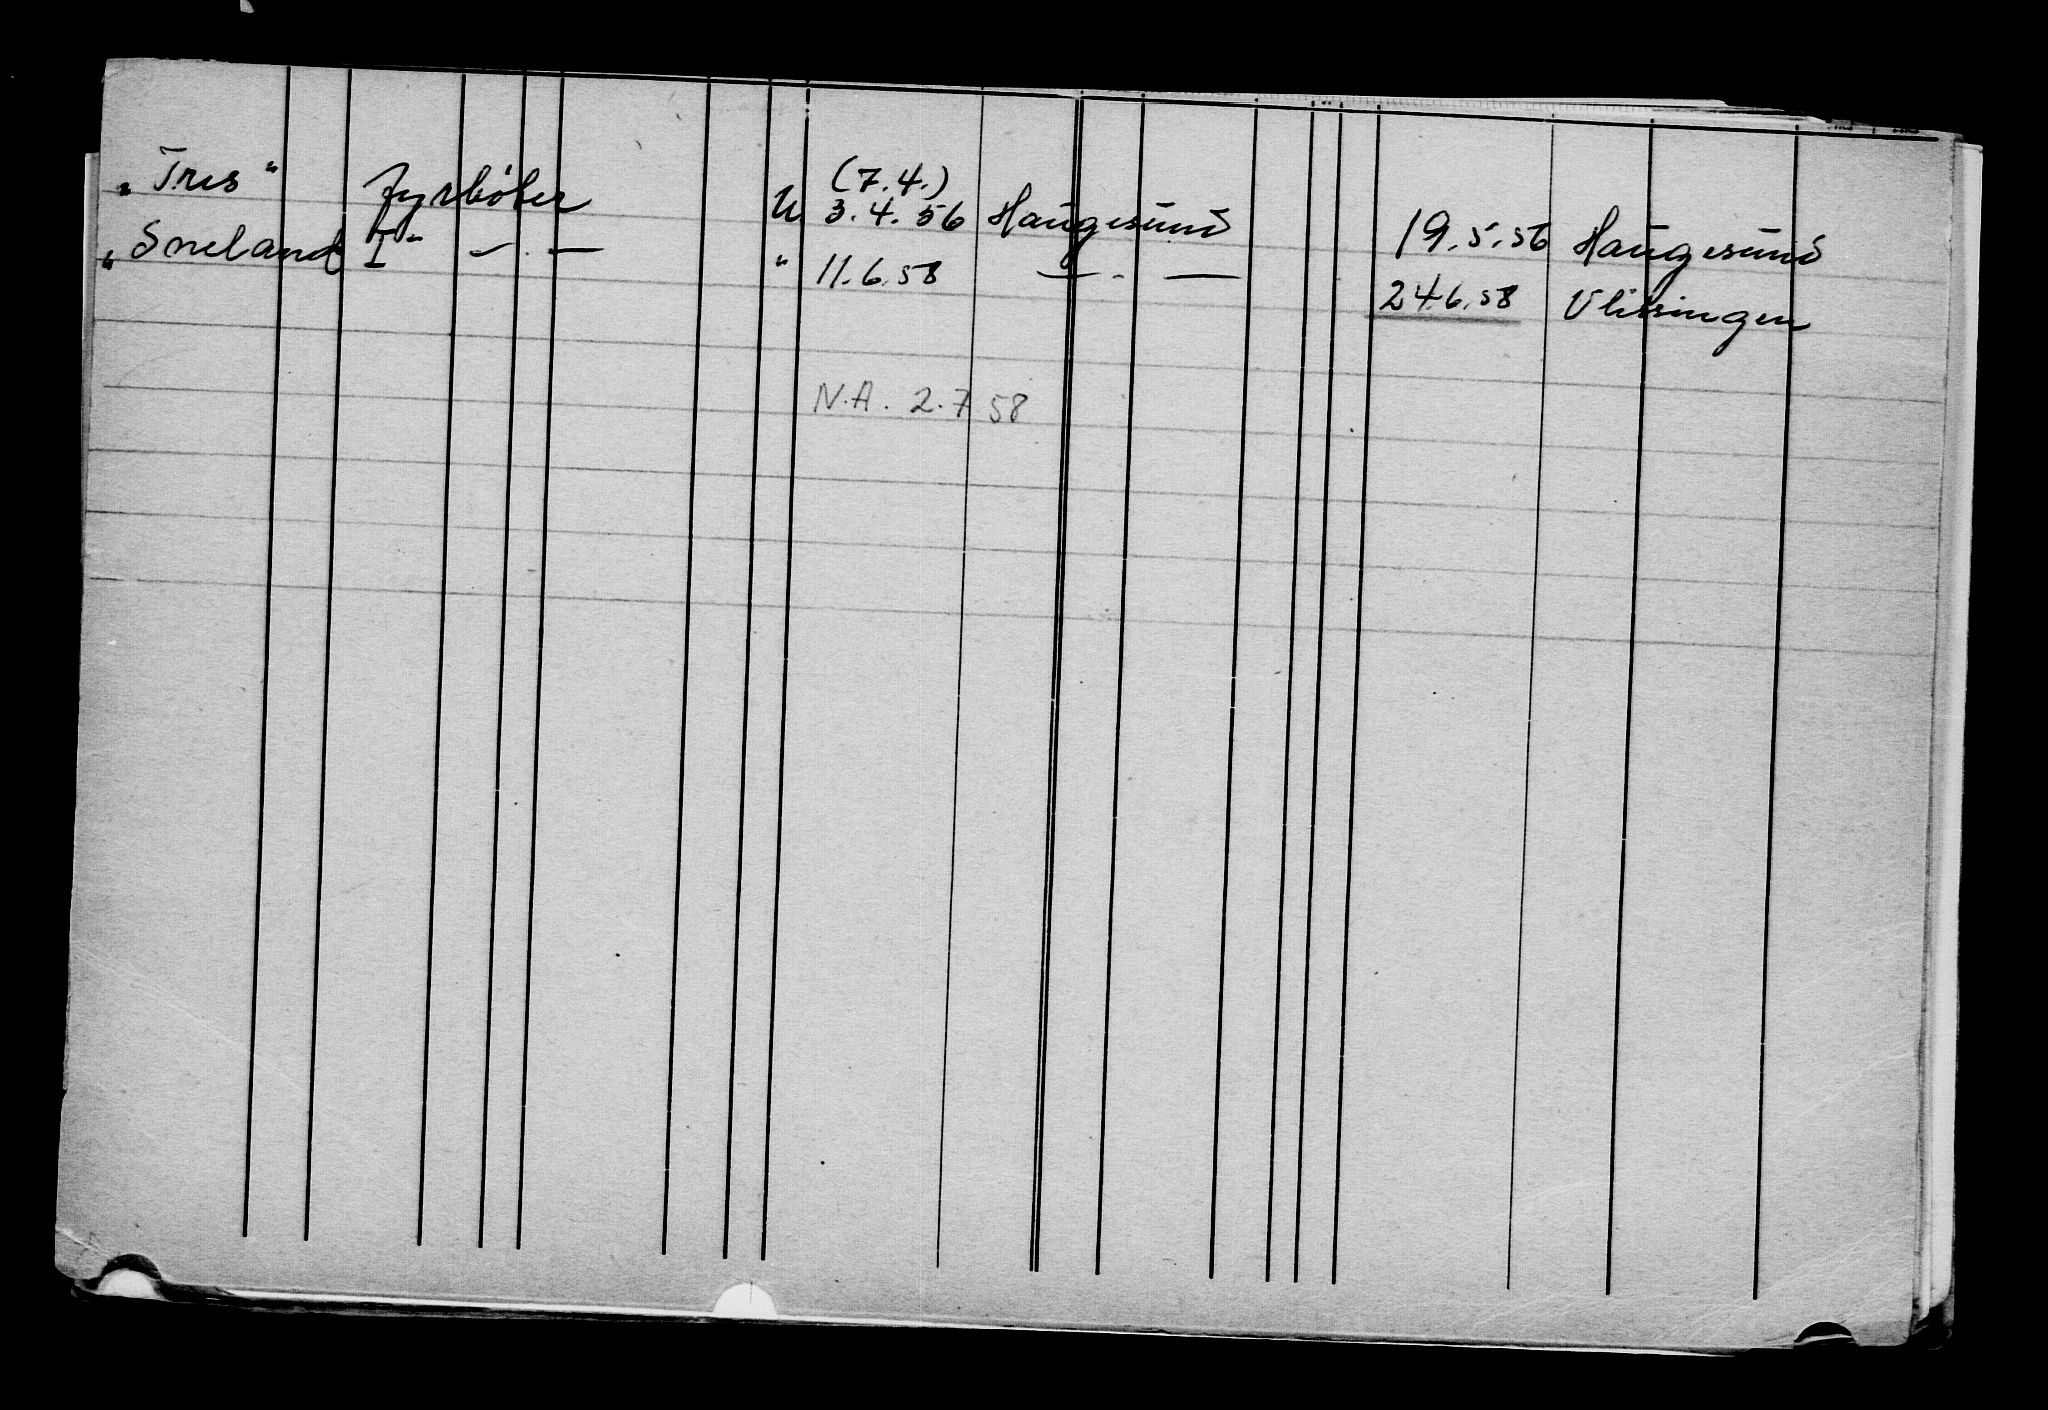 „Tres" Fyrbøter U (7.4.) 3.4.56 Haugesund 19.5.56 Haugesund
„Sneland I" — " — " 11.6.58 — " — 24.6.58 Vlissingen
N.A. 2.7 58